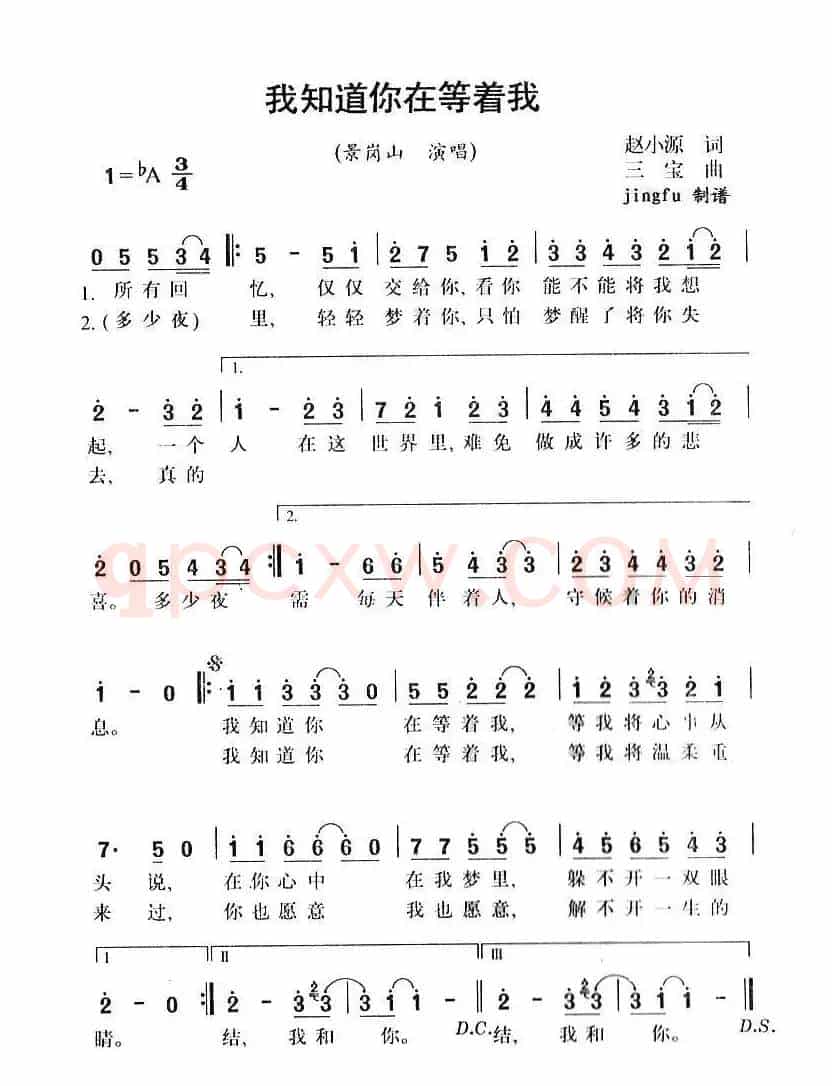 我知道你在等着我
(景岗山 演唱)
赵小源 词
三宝 曲
jingfu 制谱
1=♭A 3/4
0 5 5 3 4 ‖: 5 - 5 1 | 2 7 5 1 2 | 3 3 4 3 2 1 2 |
1. 所有回 忆, 仅仅 交给你,看你 能不能将我想
2.(多少夜) 里, 轻轻 梦着你,只怕 梦醒了将你失
1.
2 - 3 2 | 1 - 2 3 | 7 2 1 2 3 | 4 4 5 4 3 1 2 |
起, 一个 人 在这 世界里,难免 做成许多的悲
去, 真的
2.
2 0 5 4 3 4 :‖ 1 - 6 6 | 5 4 3 3 | 2 3 4 4 3 2 |
喜。多少夜 需 每天 伴着人, 守候着你的消
qpcxw.COM
1 - 0 ‖: 1 1 3 3 3 0 | 5 5 2 2 2 | 1 2 3 3 2 1 |
息。 我知道你 在等着我, 等我将心事从
我知道你 在等着我, 等我将温柔重
7· 5 0 | 1 1 6 6 6 0 | 7 7 5 5 5 | 4 5 6 5 4 3 |
头说, 在你心中 在我梦里, 躲不开一双眼
来过, 你也愿意 我也愿意, 解不开一生的
I II III
2 - 0 :‖ 2 - 3 3 | 3 1 1 - ‖ 2 - 3 3 | 3 1 1 - ‖
睛。 结, 我和 你。 D.C. 结, 我和 你。 D.S.